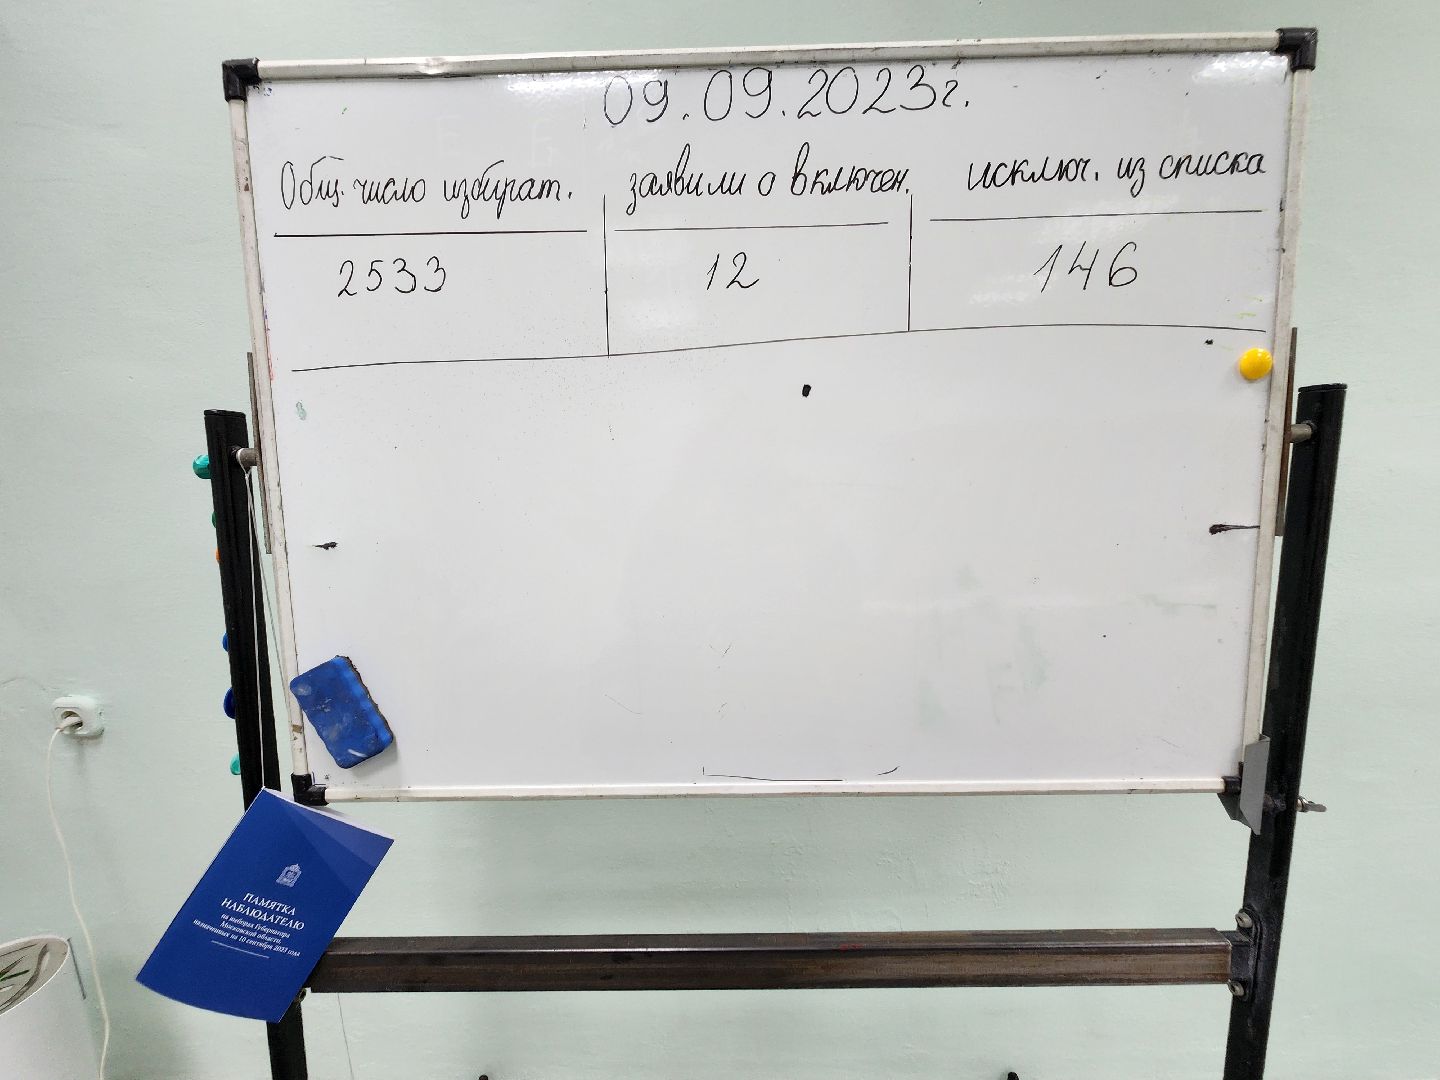 09.09.2023г.
Общ. число избират. заявили о включен. исключ. из списка
2533 12 146
ПАМЯТКА
НАБЛЮДАТЕЛЮ
на выборах Губернатора
Московской области,
назначенных на 10 сентября 2023 года